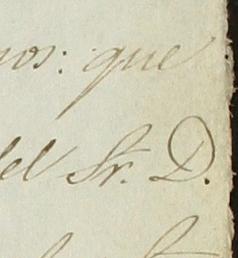 nos: que
del Sr. D.